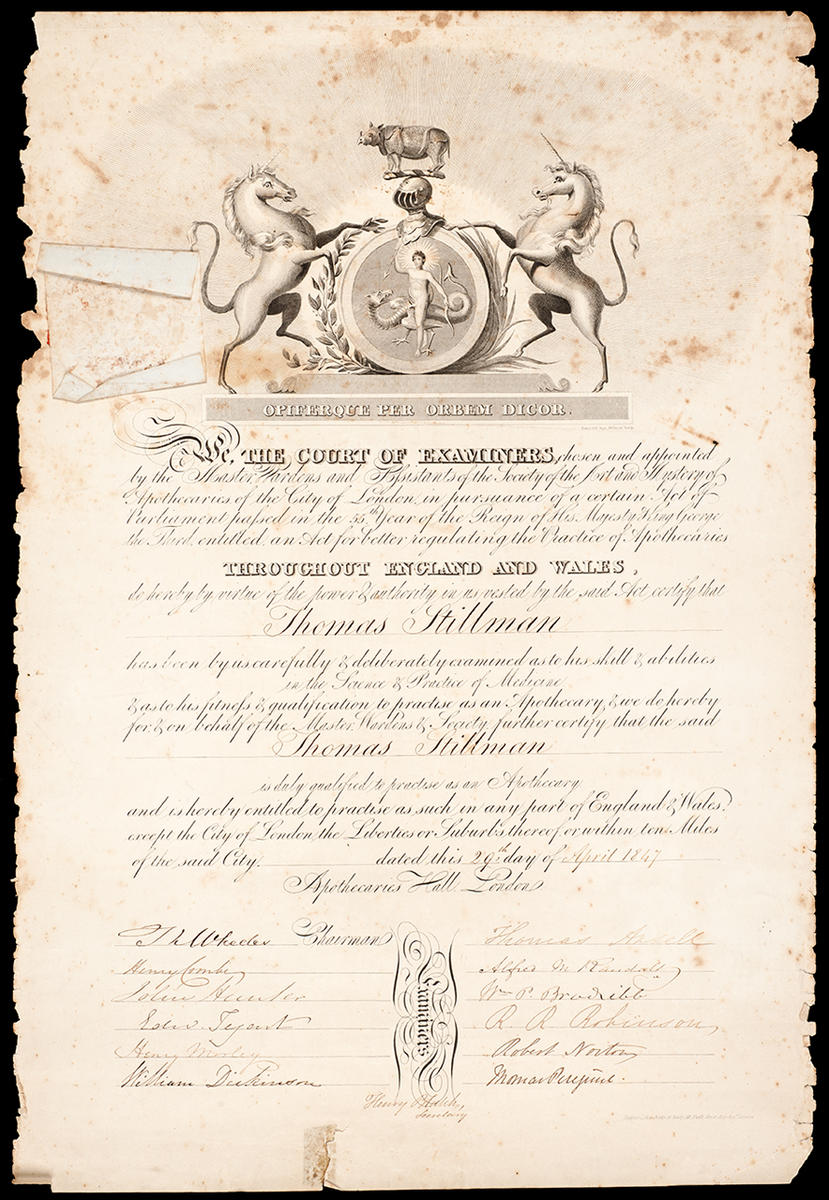 OPIFERQUE PER ORBEM DICOR.
We, THE COURT OF EXAMINERS, chosen and appointed
by the Master, Wardens and Assistants of the Society of the Art and Mystery of
Apothecaries of the City of London, in pursuance of a certain Act of
Parliament passed in the 55th Year of the Reign of His Majesty King George
the Third, entitled, an Act for better regulating the Practice of Apothecaries
THROUGHOUT ENGLAND AND WALES,
do hereby by virtue of the power & authority in us vested by the said Act, certify that
Thomas Stillman
has been by us carefully & deliberately examined as to his skill & abilities
in the Science & Practice of Medicine
& as to his fitness & qualification to practise as an Apothecary, & we do hereby
for, & on behalf of the Master, Wardens & Society, further certify that the said
Thomas Stillman
is duly qualified to practise as an Apothecary
and is hereby entitled to practise as such in any part of England & Wales,
except the City of London, the Liberties or Suburbs thereof or within ten Miles
of the said City. dated this 29th day of April 1847
Apothecaries Hall London
Chairman
Thomas Ansell
Henry Combe
Alfred M Randall
John Hunter
Wm P. Brodribb
R R Robinson
Henry Morley
Robert Norton
William Dickinson
Thomas Peregrine.
Examiners
Henry
Secretary